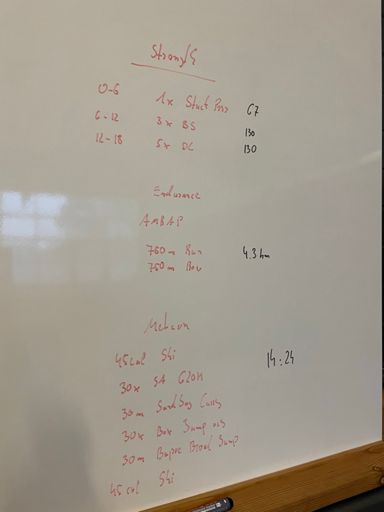 Strength
0-6 1x Strict Press 67
6-12 3x BS 130
12-18 5x DL 130
Endurance
AMRAP
750m Run 4.3 km
750m Row
Metcon
45 cal Ski 14:24
30x SA G2OH
30m Sandbag Carry
30x Box Jump
30m Burpee Broad Jump
45 cal Ski